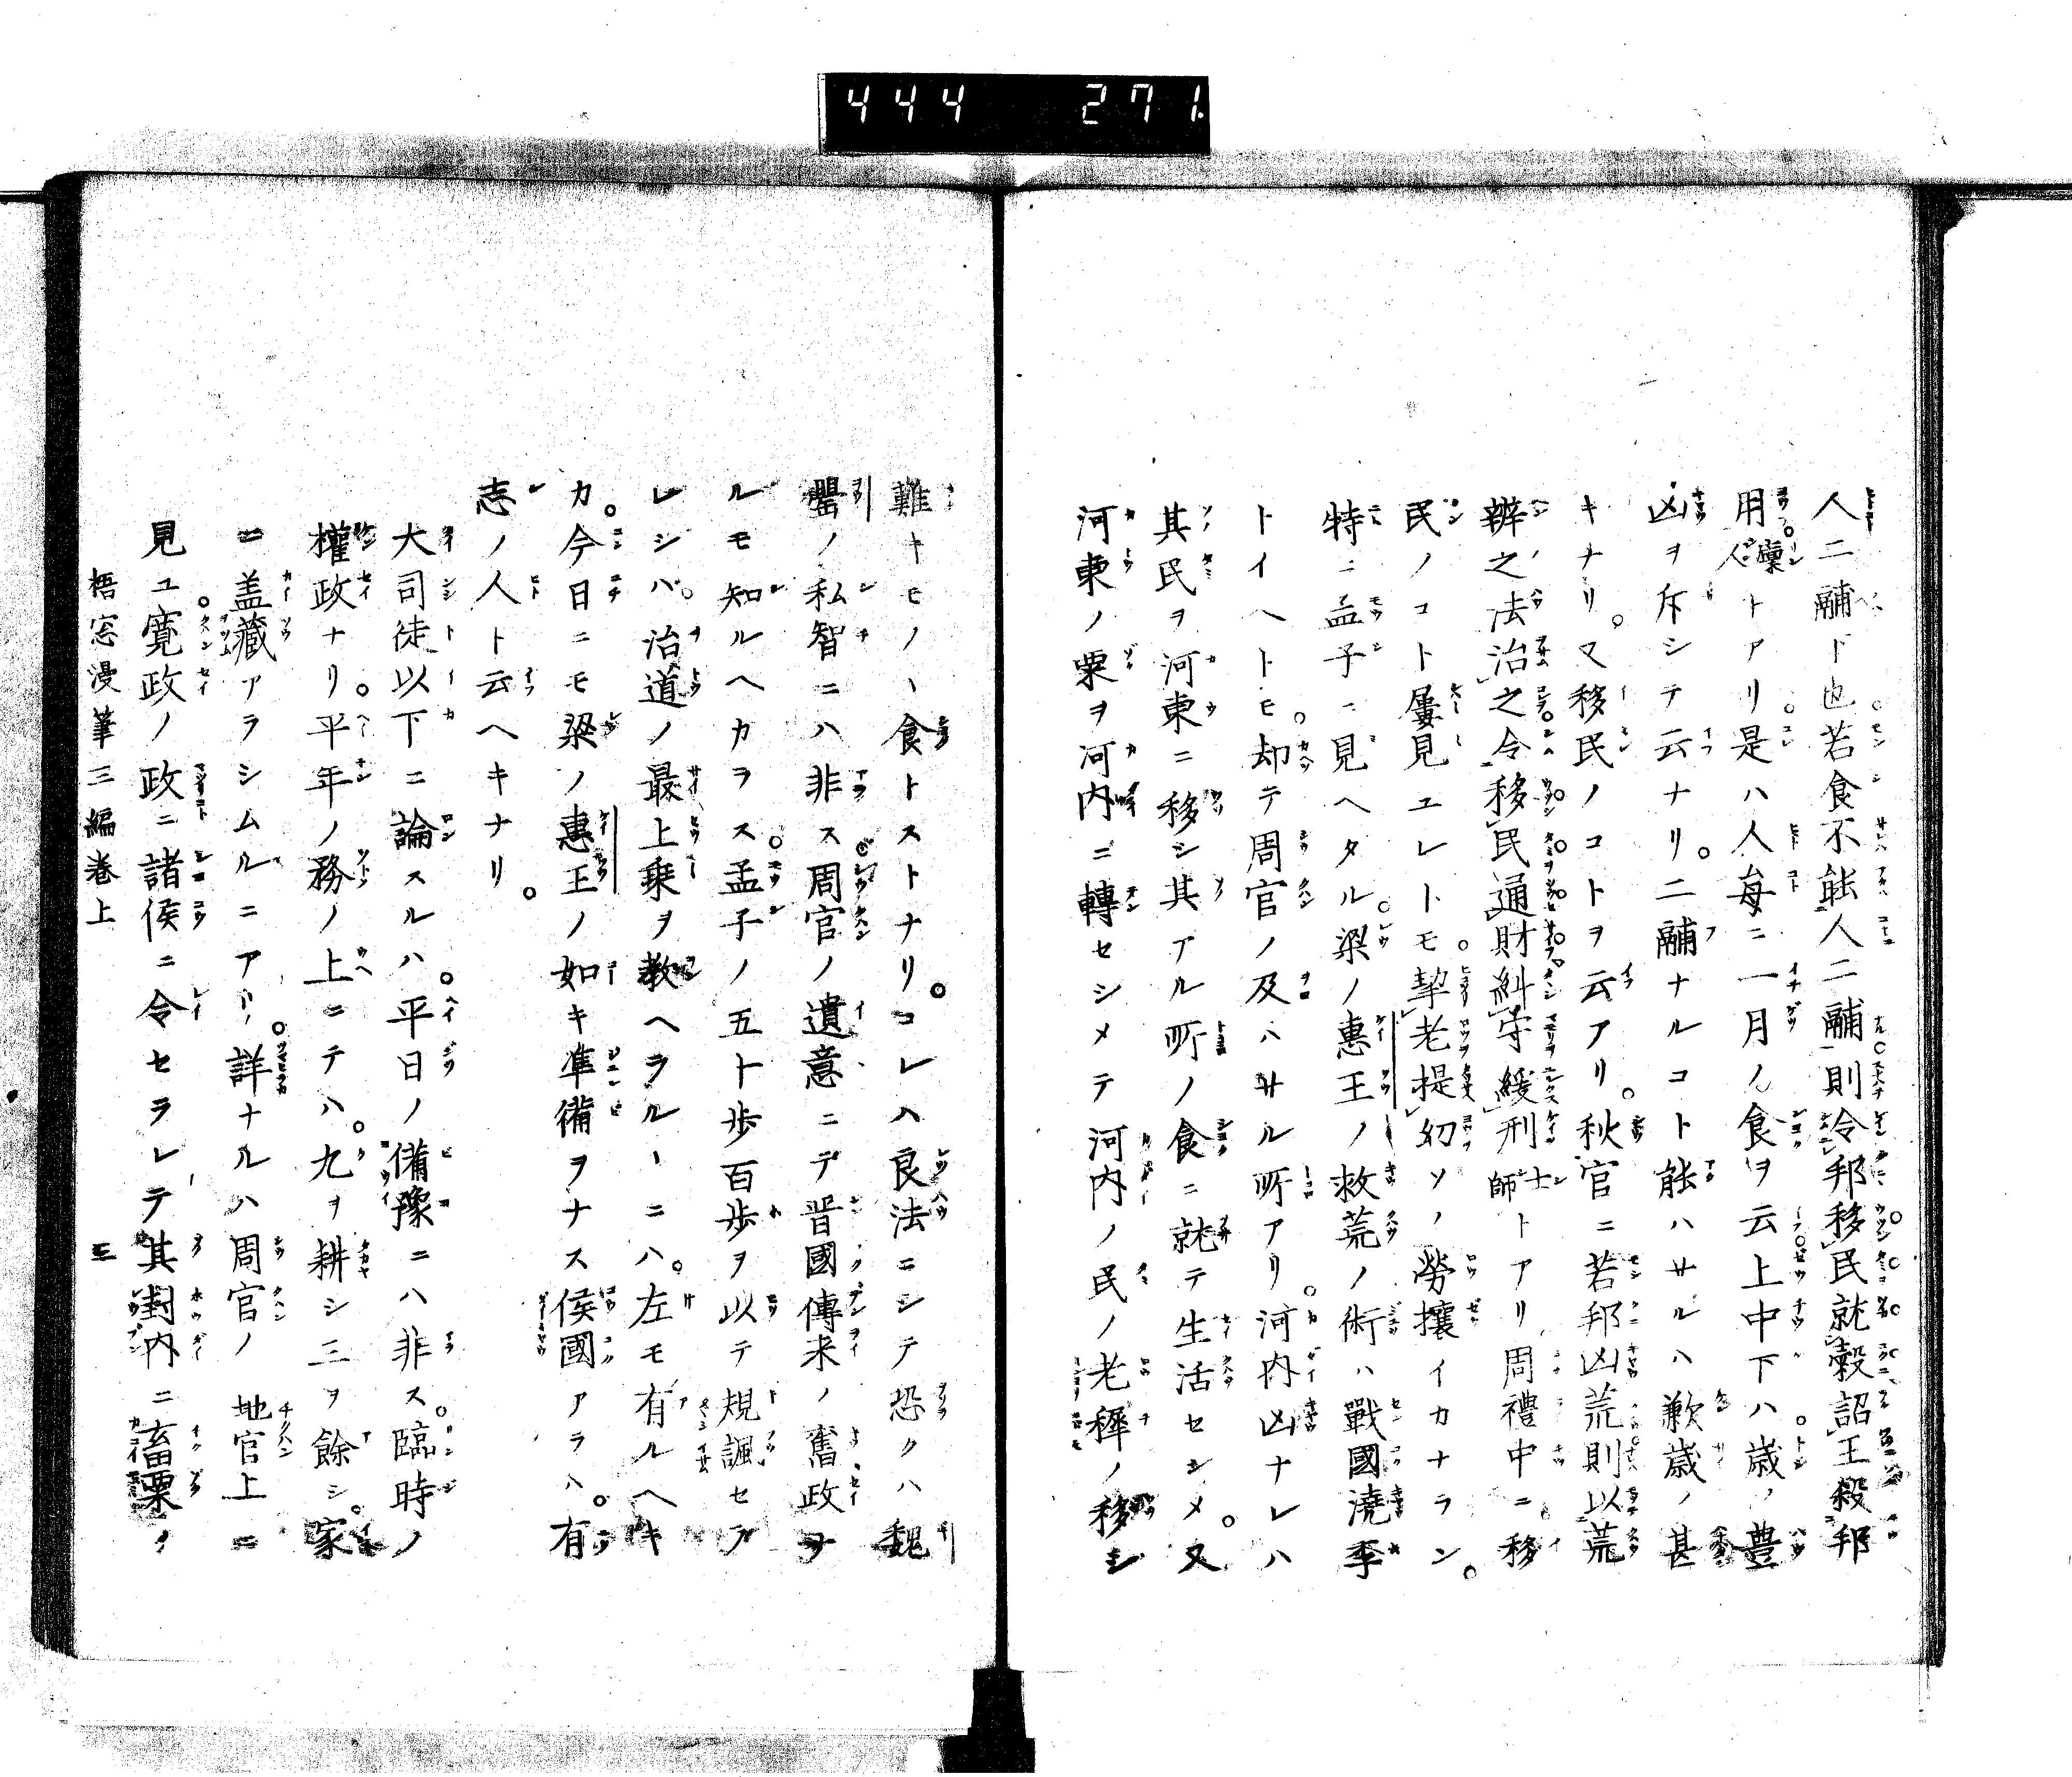 444 271
人二鬴下也若食不能人二鬴則令邦移民就穀詔王殺邦
用廩人トアリ是ハ人毎ニ一月ノ食ヲ云上中下ハ歳ノ豊
凶ヲ斥シテ云ナリ。二鬴ナルコト能ハサルハ歉歳ノ甚
キナリ。又移民ノコトヲ云アリ。秋官ニ若邦凶荒則以荒
辨之法治之令移民通財糾守緩刑士師トアリ周禮中ニ移
民ノコト屢見ユレトモ。挈老提幼ソノ勞攘イカナラン。
特ニ孟子ニ見ヘタル。梁ノ惠王ノ救荒ノ術ハ戰國澆季
トイヘトモ。却テ周官ノ及ハサル所アリ。河内凶ナレハ
其民ヲ河東ニ移シ其アル所ノ食ニ就テ生活セシメ。又
河東ノ粟ヲ河内ニ轉セシメテ河内ノ民ノ老穉ノ移シ
難キモノヽ食トストナリ。コレハ良法ニシテ恐クハ魏
罌ノ私智ニハ非ス周官ノ遺意ニテ晋國傳来ノ舊政ヲ
ルモ知ルヘカラス。孟子ノ五十歩百歩ヲ以テ規諷セラ
レシハ。治道ノ最上乗ヲ教ヘラルヽニハ。左モ有ルヘキ
カ。今日ニモ梁ノ惠王ノ如キ準備ヲナス侯國アラハ。有
志ノ人ト云ヘキナリ。
大司徒以下ニ論スルハ。平日ノ備豫ニハ非ス。臨時ノ
權政ナリ。平年ノ務ノ上ニテハ。九ヲ耕シ三ヲ餘シ。家
ニ盖藏アラシムルニアリ。詳ナルハ周官ノ 地官上ニ
見ユ。寛政ノ政ニ諸侯ニ令セラレテ其封内ニ畜粟ノ
梧窓漫筆三編巻上 三